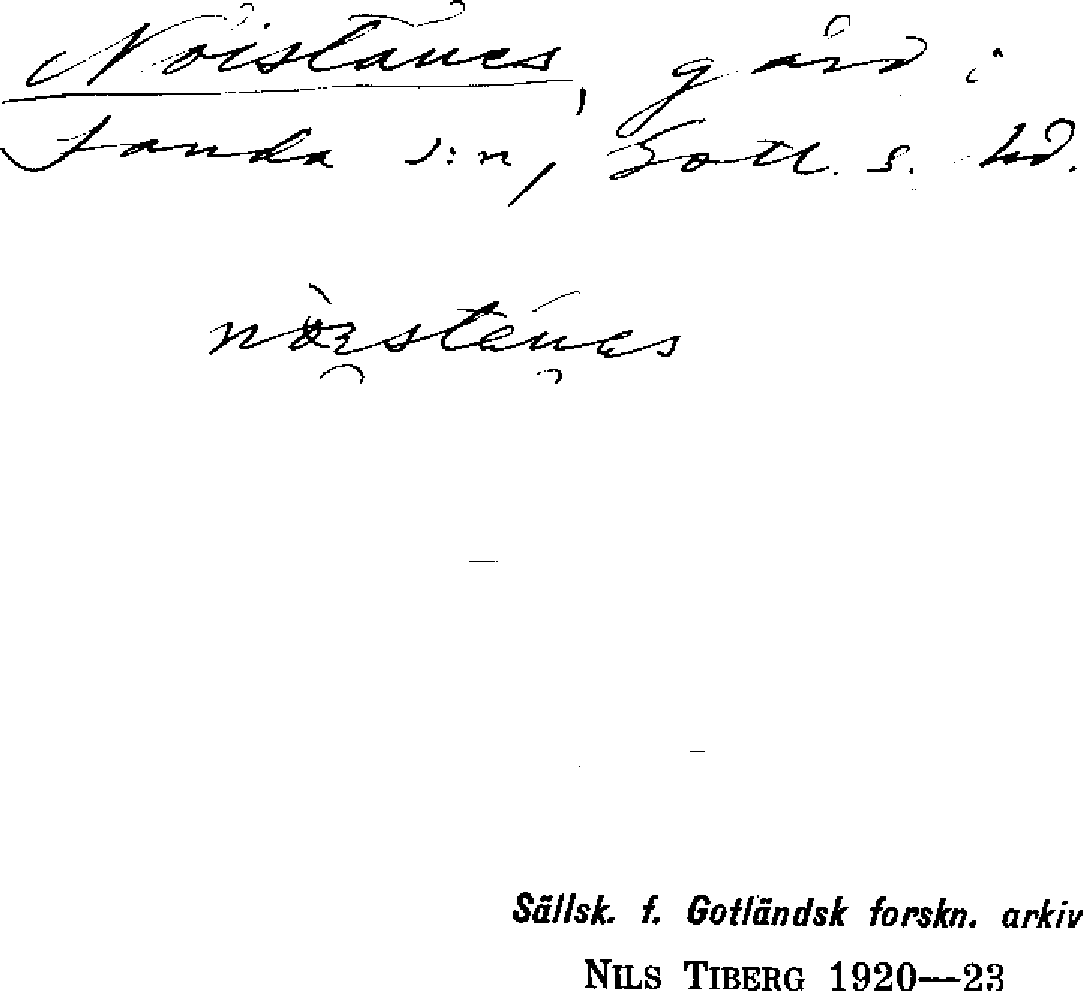 Nöistäues, gård i
Sanda s:n, Gotl. s. hd.
Sällsk. f. Gotländsk forskn. arkiv
NILS TIBERG 1920—23